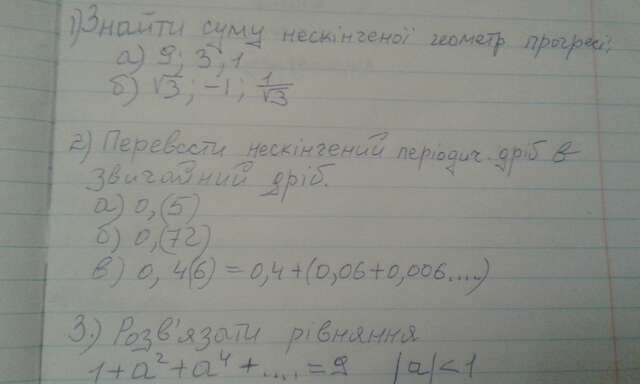 1) Знайти суму нескінченої геометр прогресі;
а) 9; 3; 1
б) √3; -1; 1/√3
2) Перевести нескінчений періодич. дріб в
звичайний дріб.
а) 0,(5)
б) 0,(72)
в) 0,4(6) = 0,4+(0,06+0,006....)
3.) Розв'язати рівняння
1+a²+a⁴+.... = 9 |a|<1